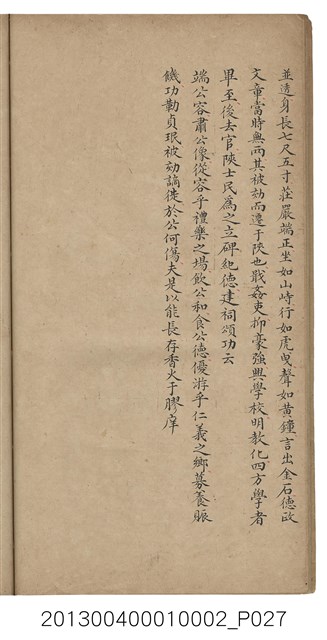 並遠身長七尺五寸莊嚴端正坐如山峙行如虎曳聲如黃鐘言出金石德政
文章當時無兩其被劾而遷于陝也戢姦吏抑豪強興學校明教化四方學者
畢至後去官陝士民為之立碑紀德建祠頌功云
端公容肅公像從容乎禮樂之場飲公和食公德優游乎仁義之鄉募養賑
饑功勒貞珉被劾謫徙於公何傷夫是以能長存香火于膠庠
201300400010002_P027